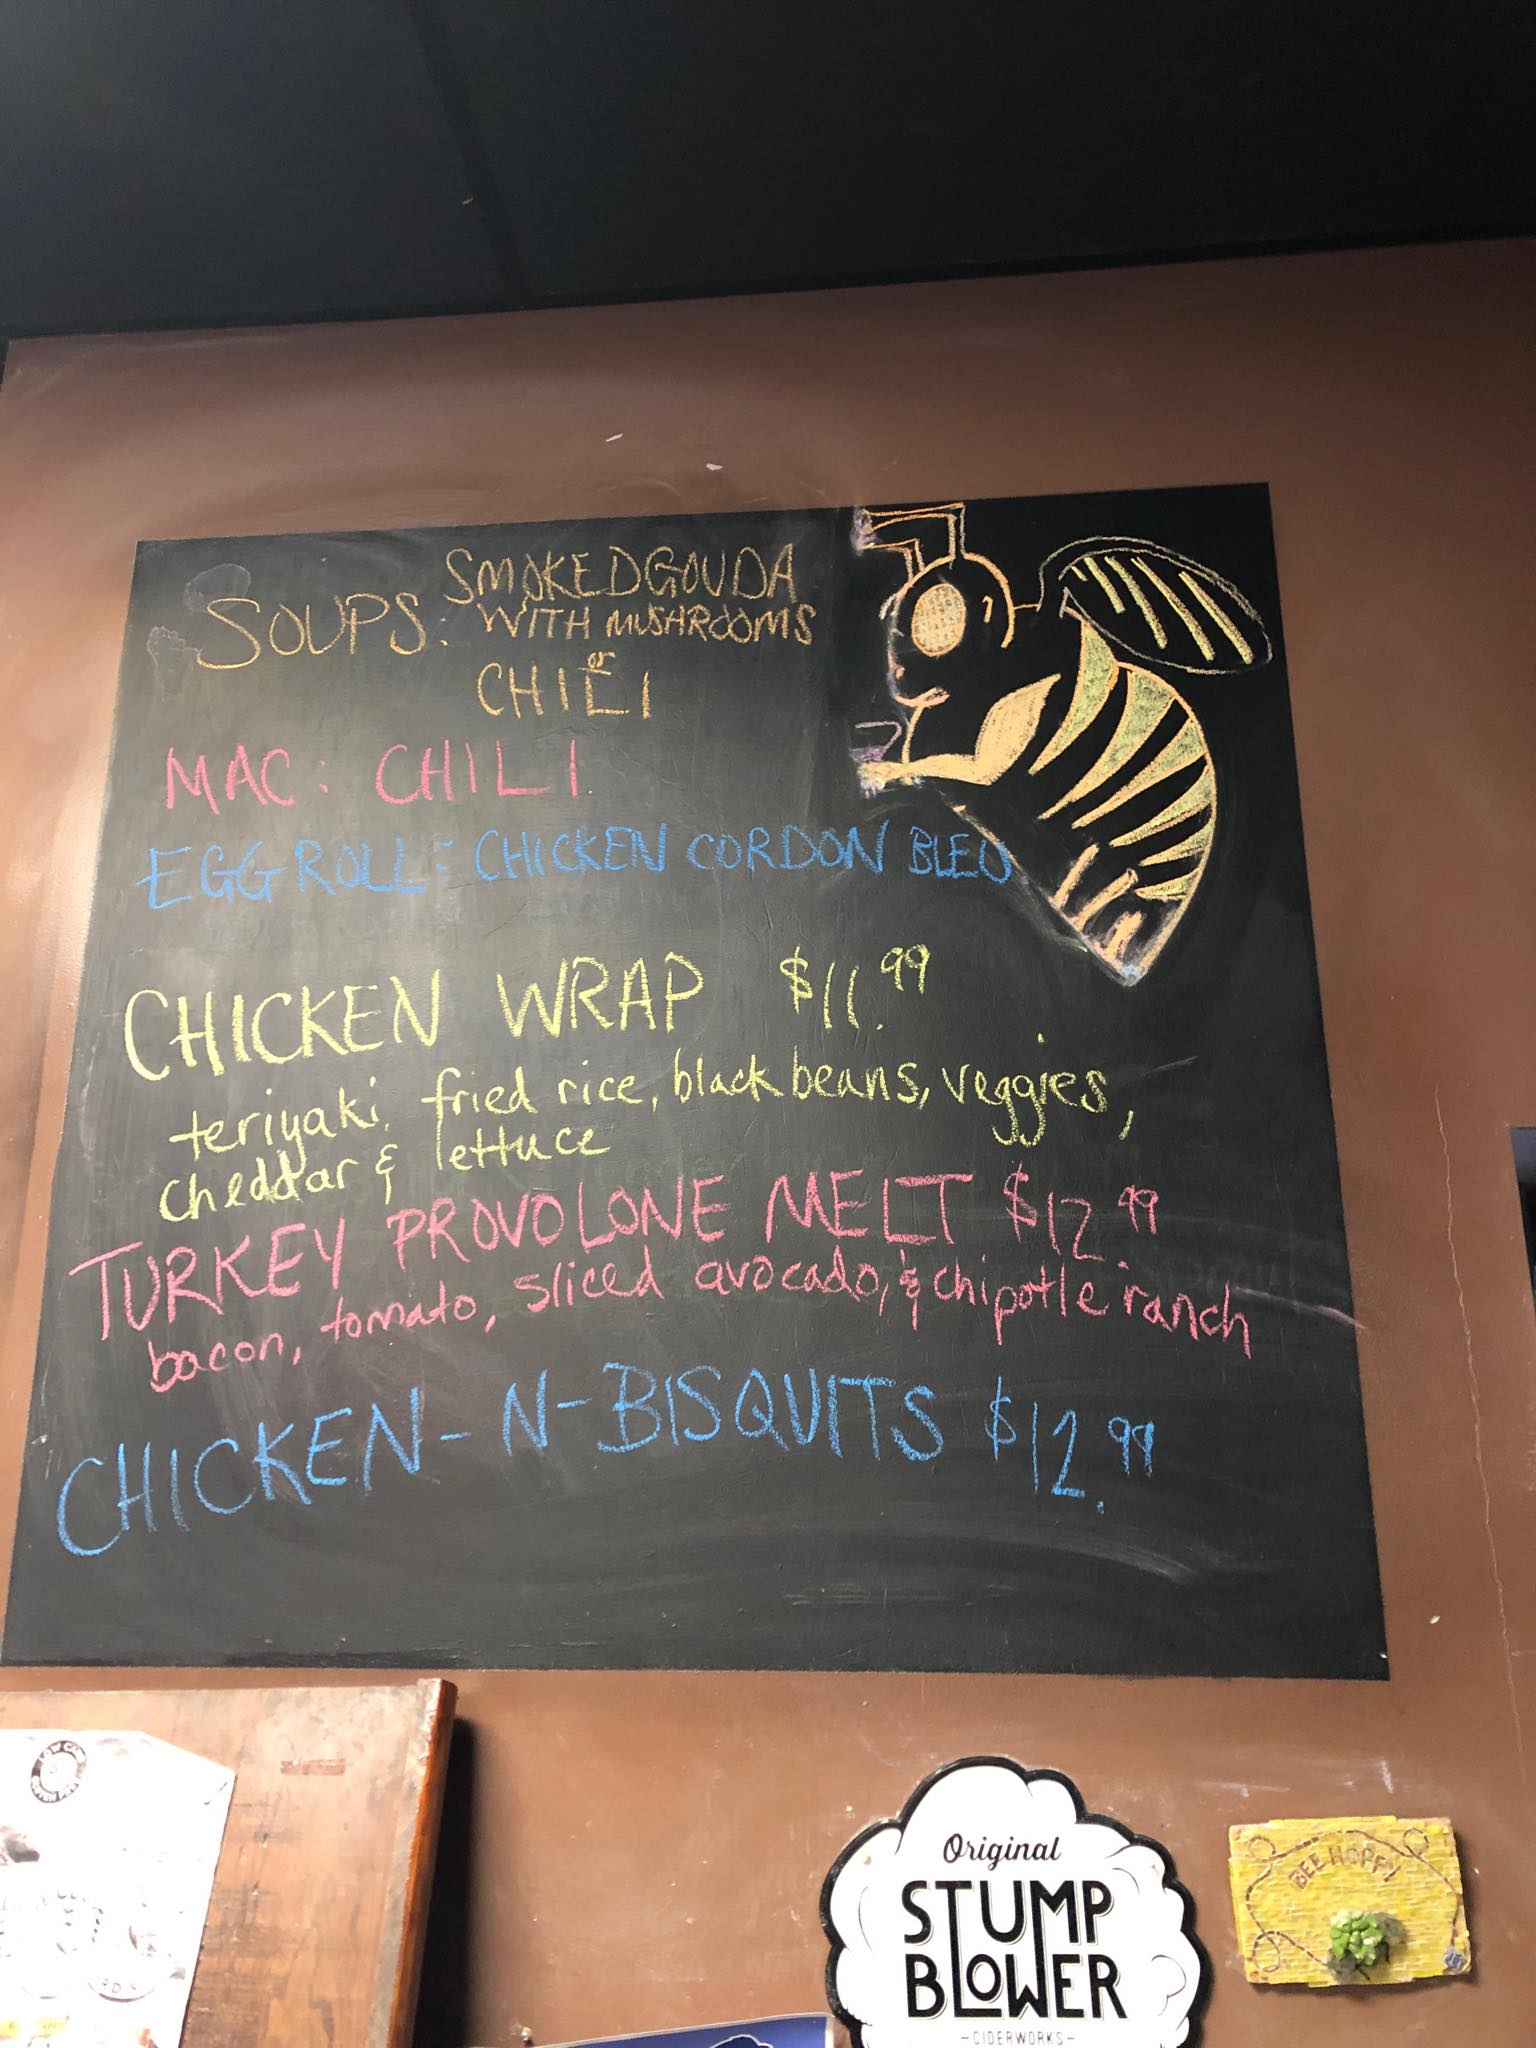 SOUPS: SMOKED GOUDA
WITH MUSHROOMS
or
CHILI
MAC: CHILI
EGG ROLL: CHICKEN CORDON BLEU
CHICKEN WRAP $11.99
teriyaki, fried rice, black beans, veggies,
cheddar & lettuce
TURKEY PROVOLONE MELT $12.99
bacon, tomato, sliced avocado, & chipotle ranch
CHICKEN-N-BISQUITS $12.99
LOW CARB
Original
STUMP
BLOWER
-CIDERWORKS-
BEE HOPPY